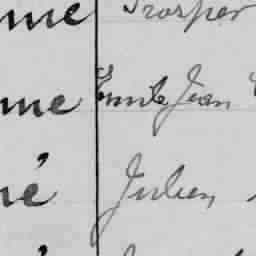 me Prosper
me Emile Jean
né Julien